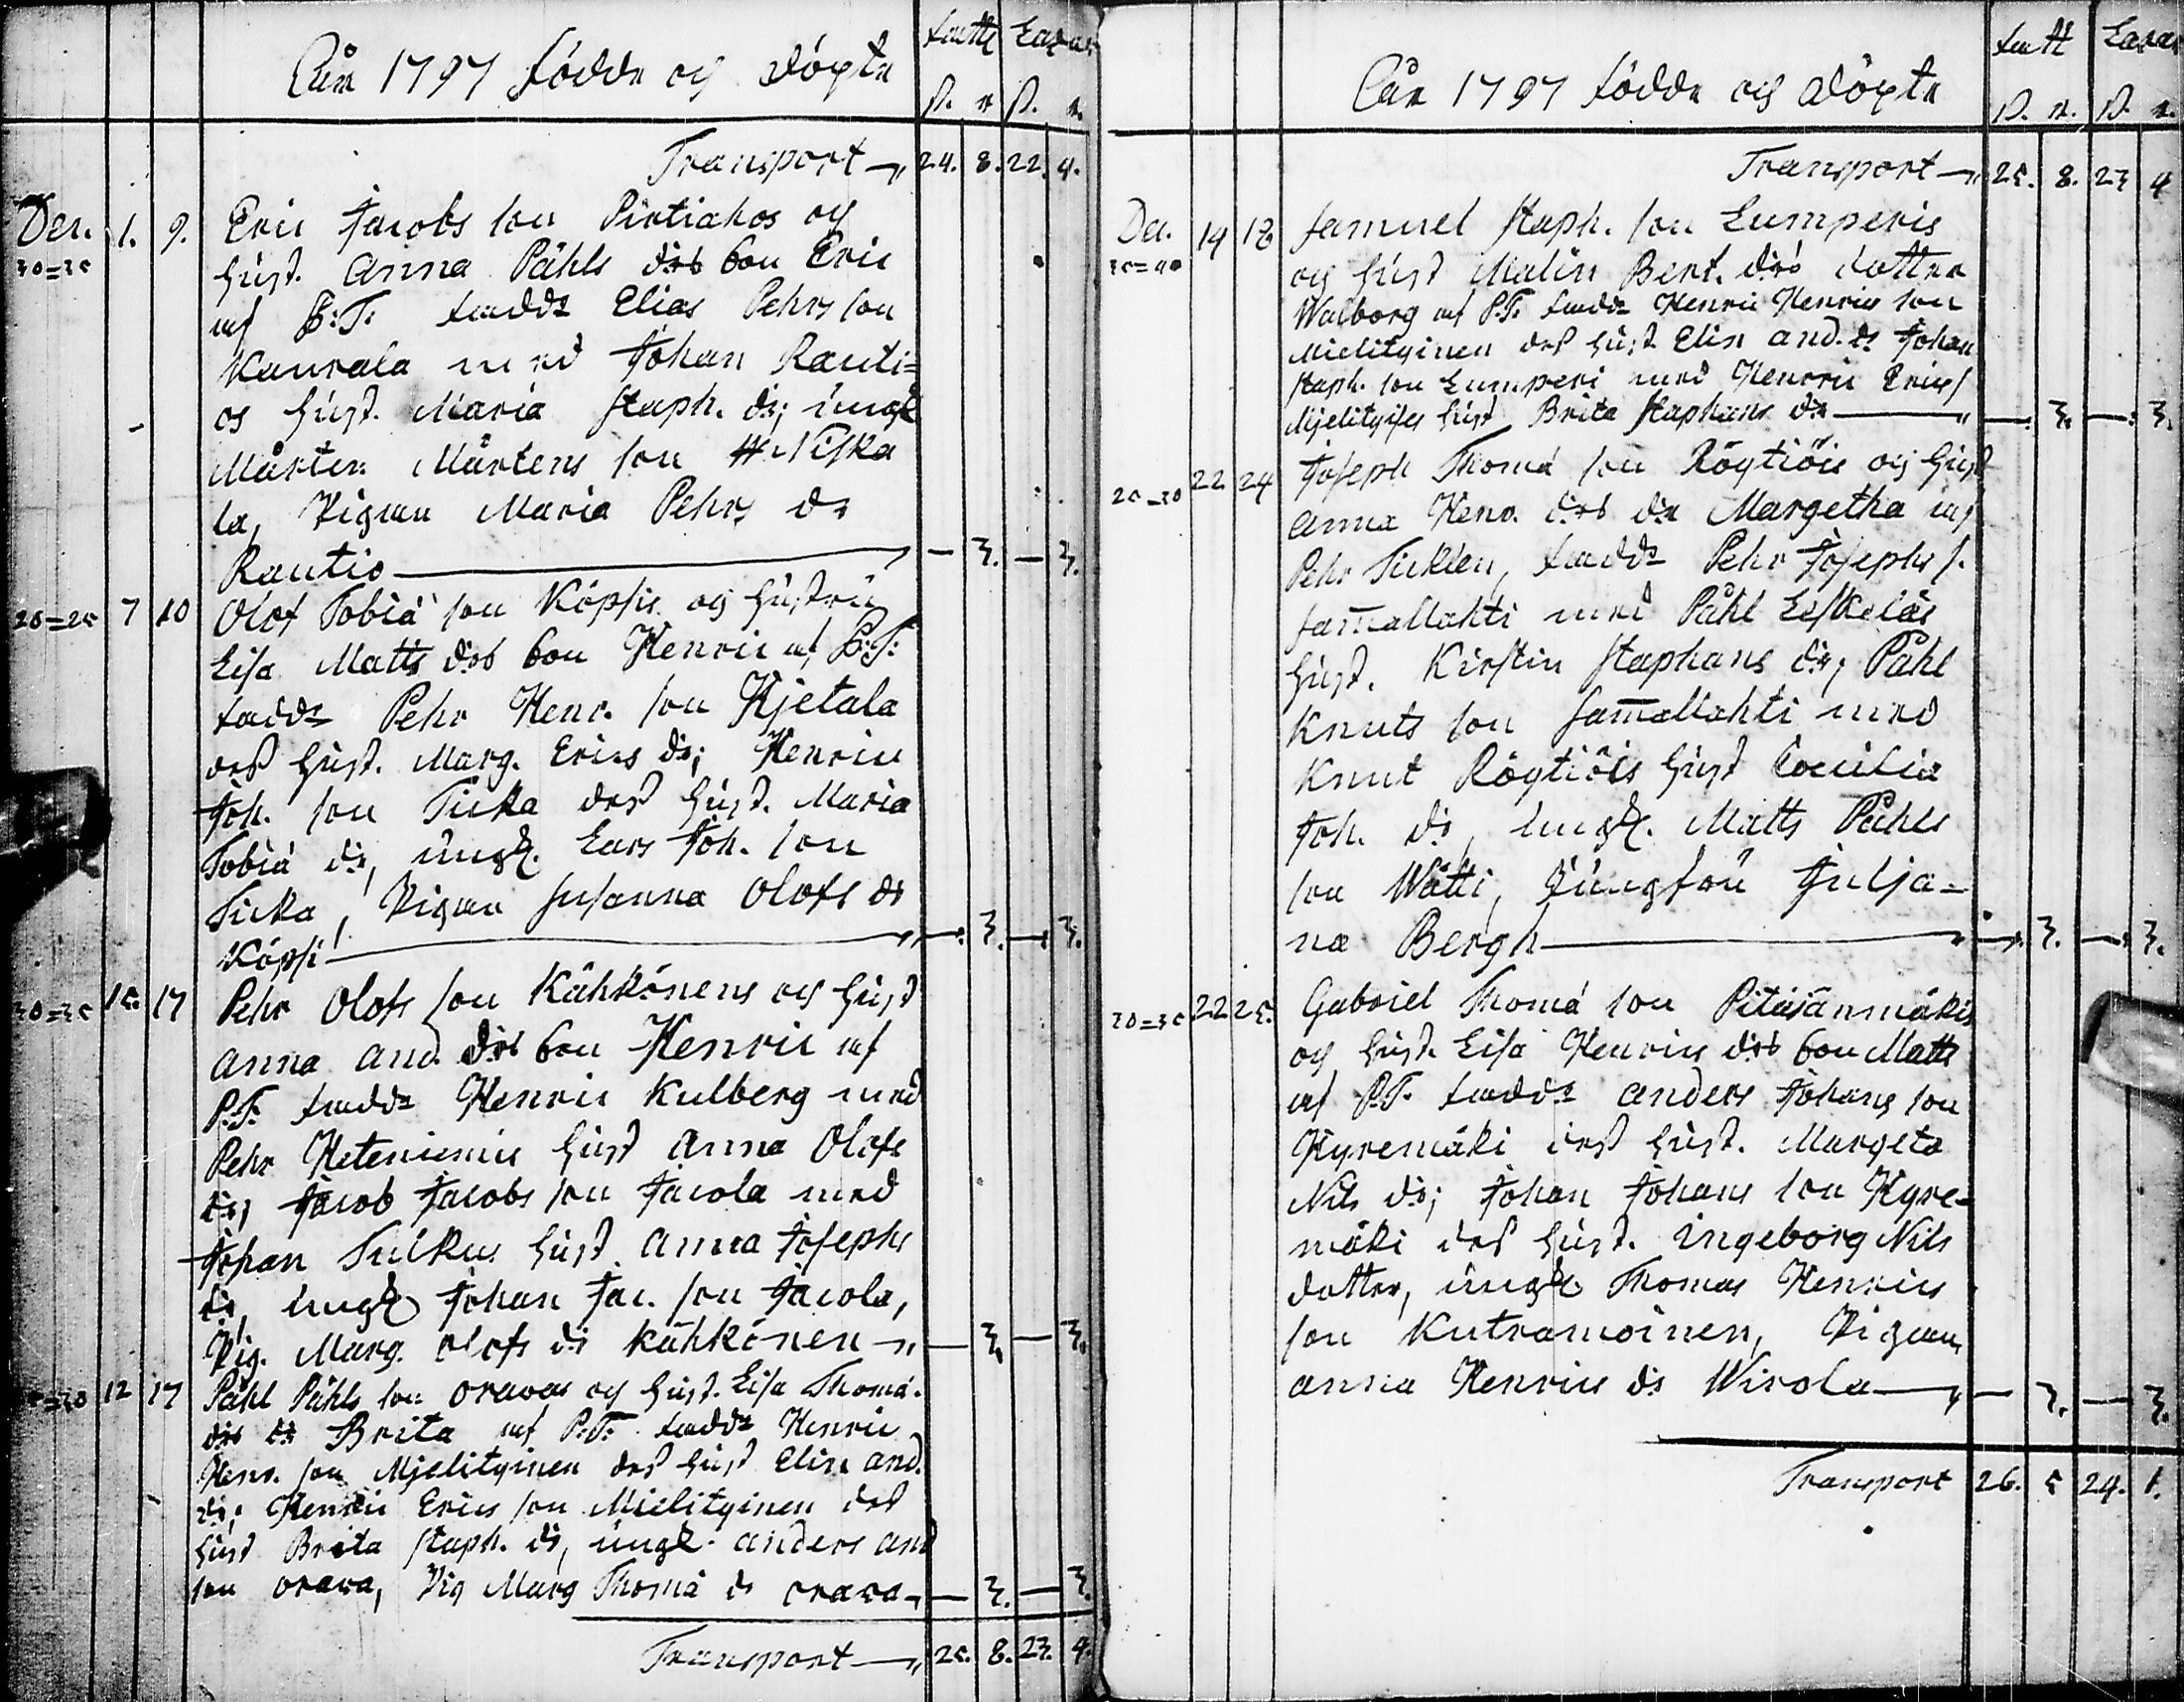 fatti Lavar
Åhr 1797 födde och döpte
ß. r ß. r.
Transport 24. 8. 22. 4.
Dec. 1. 9. Eric Jacobs son Pirtiakos och
30=35 hust. Anna Påhls drs son Eric
af P:T: fadd: Elias Pehrs son
Kaurala med Johan Rauti=
os hust. Maria Staph. dr; ungk
Mårten Mårtens son Niska
la, Pigan Maria Pehrs dr
Rautio — 3. — 3.
20=25 7 10 Olof Tobiæ son Köpsis och hustru
Lisa Matts drs son Henric af P:T:
fadd: Pehr Henr. son Hjetala
dess hust. Marg. Erics dr; Henric
Joh. son Ticka dess hust. Maria
Tobiæ dr, ungk. Lars Joh. son
Ticka, Pigan Susanna Olofs dr
Köpsi — 3. — 3.
30=35 15. 17 Pehr Olofs son Kähkönens och hust
Anna And. drs son Henric af
P.T. fadd: Henric Kulberg med
Pehr Heteniemis hust Anna Olofs
dr, Jacob Jacobs son Jacola med
Johan Tulkus hust. Anna Josephs
dr, ungk Johan Jac. son Jacola,
Pig. Marg. Olofs dr Kähkönen — 3. — 3.
12 17 Påhl Påhls son Oravas och hust. Lisa Thomæ
drs dr Brita af P:T: fadd: Henric
Henr. son Mjelityinen dess hust Elin And.
dr; Henric Erics son Mielityinen dess
hust Brita Staph. dr, ungk. Anders And
son Orava, Pig Marg Thomæ dr Orava — 3. — 3.
Transport 25. 8. 23. 4.
fatt Lavar
Åhr 1797 födde och döpte
ß. r. ß. r.
Transport 25. 8. 23 4
Dec. 14 18 Samuel Staph. son Lumperis
35=40 och hust Malin Bert. drs dotter
Walborg af P.T. fadd: Henric Henrics son
Mielityinen dess hust Elin And. dr Johan
Staph. son Lumperi med Henric Erics s
Mjelityises hust Brita Staphans dr — 3. — 3.
22 24 Joseph Thomæ son Röytiöis och hust
25=30 Anna Henr. drs dr Margetha af
Pehr Ticklen, fadd: Pehr Josephs s.
Samallahti med Påhl Leskeläs
hust. Kirstin Staphans dr, Påhl
Knuts son Samallahti med
Knut Röytiöis hust Cecilia
Joh. dr, ungk. Matts Påhls
son Wätti, Jungfru Julja=
na Bergh — 3. — 3.
30=35 22 25. Gabriel Thomæ son Pitäjänmäkis
och hust. Lisa Henrics drs son Matts
af P.T. fadd: Anders Johans son
Hyremäki dess hust. Margeta
Nils dr; Johan Johans son Hyre=
mäki dess hust. Ingeborg Nils
dotter, ungk. Thomas Henrics
son Kutramoinen, Pigan
Anna Henrics dr Wirola — 3. — 3.
Transport 26. 5 24. 1.